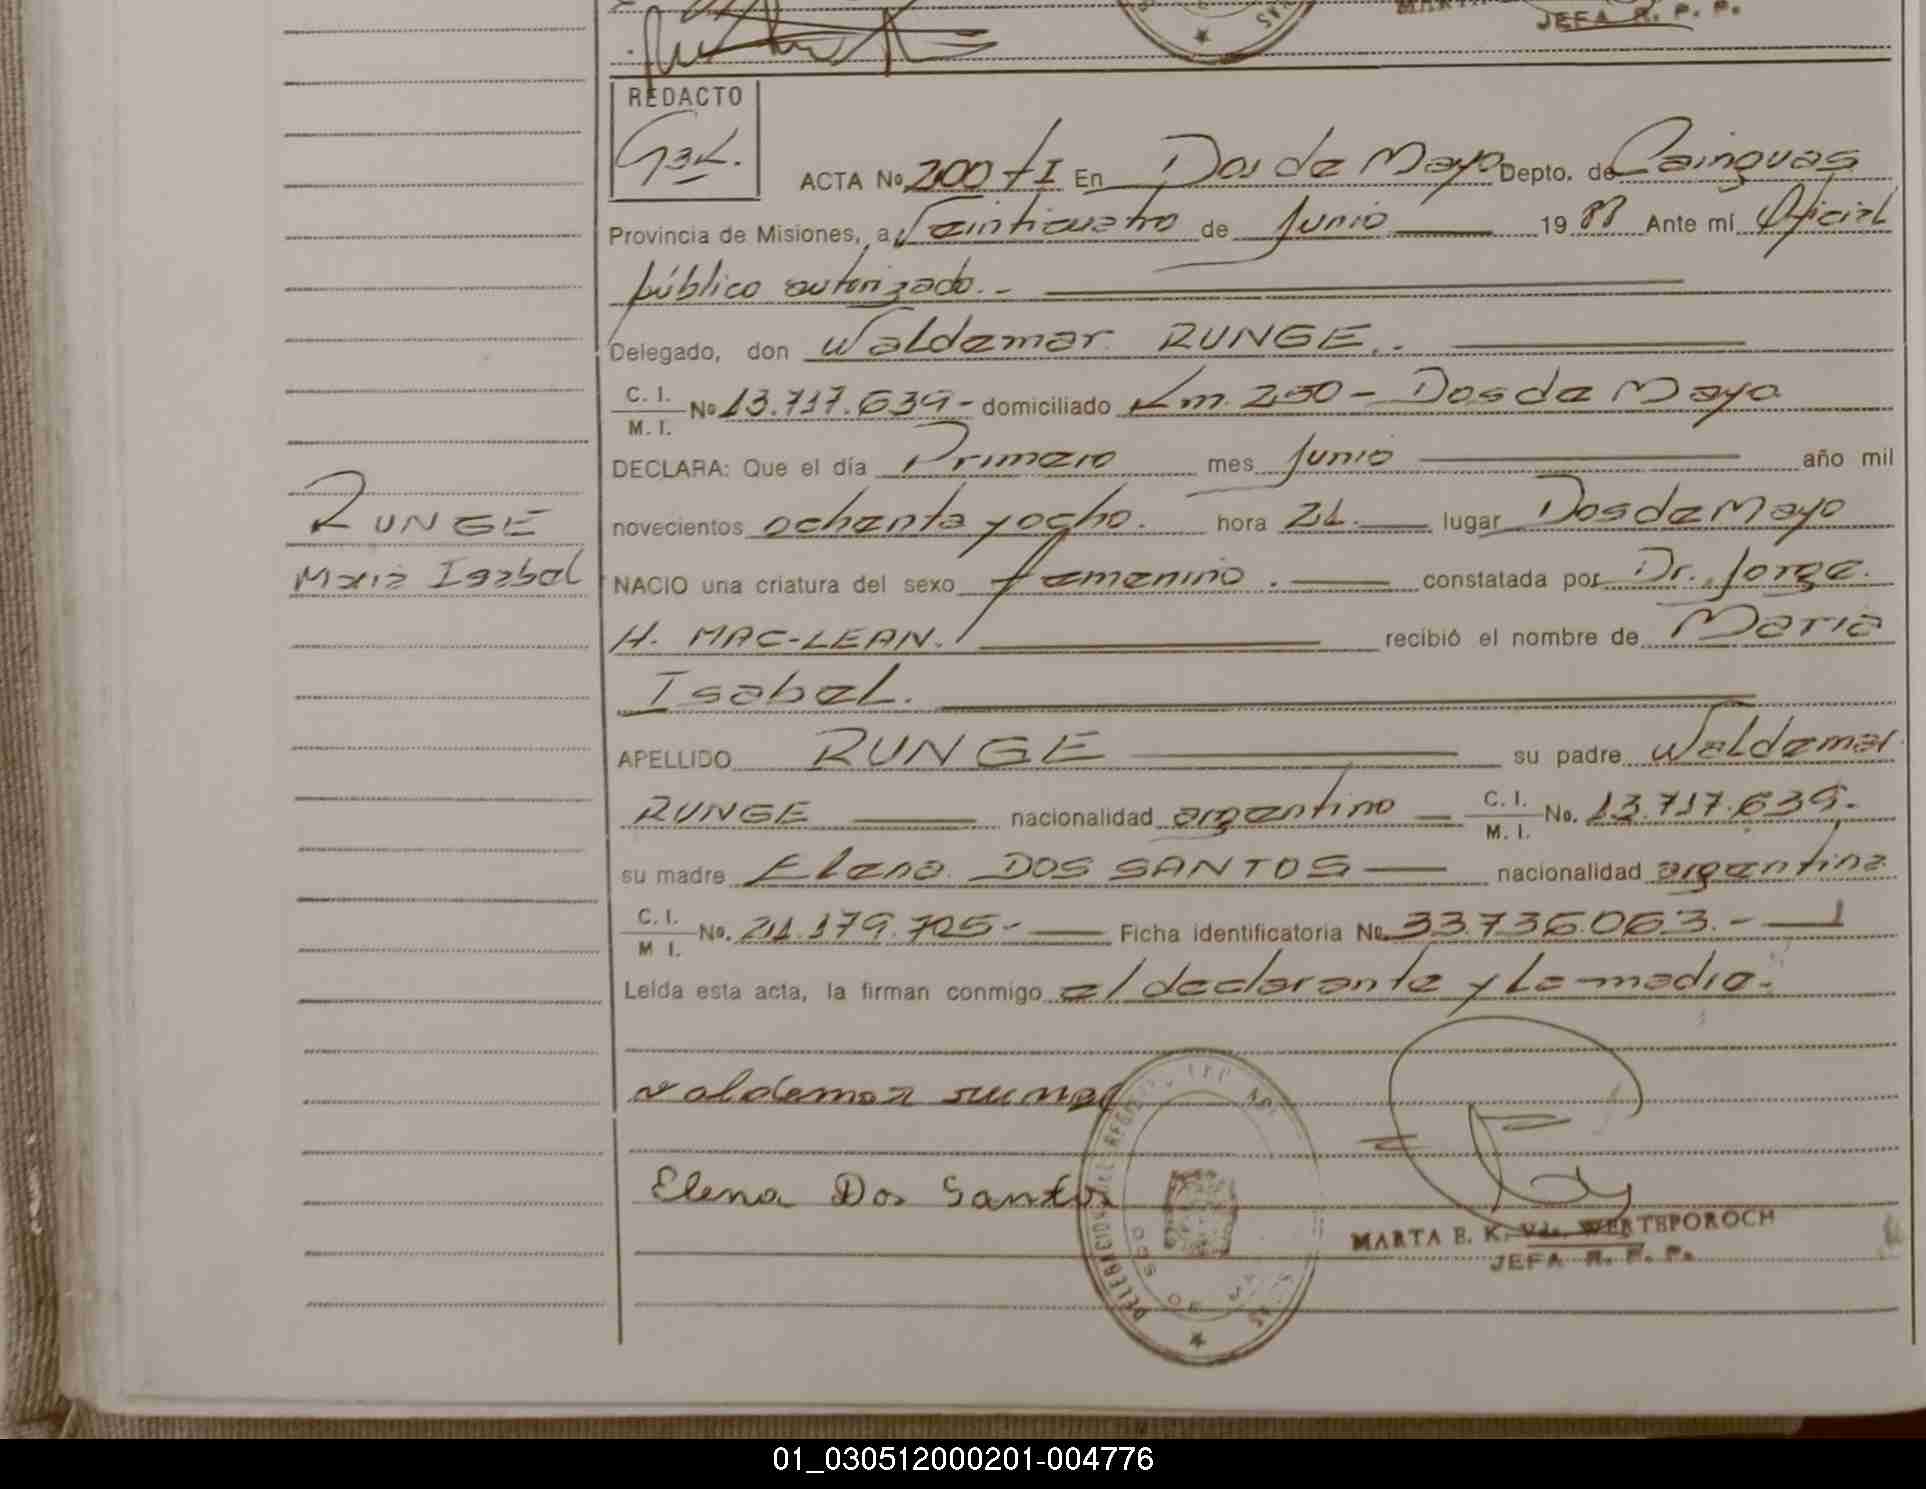 JEFA R. P. P.
REDACTO
ACTA No 200 tI En Dos de Mayo Depto. de Cainguas
Provincia de Misiones, a Veinticuatro de Junio 19 88 Ante mí Oficial
público autorizado.-
Delegado, don Waldemar RUNGE.
C. I.
M. I.
No 13.717.639- domiciliado Km. 250 - Dos de Mayo
DECLARA: Que el día Primero mes Junio año mil
novecientos ochenta y ocho. hora 21. lugar Dos de Mayo
RUNGE
Maria Isabel
NACIO una criatura del sexo femenino. constatada por Dr. Jorge
H. MAC-LEAN. recibió el nombre de Maria
Isabel.
APELLIDO RUNGE su padre Waldemar
RUNGE nacionalidad argentino C. I.
M. I.
No. 13.717.639.-
su madre Elena DOS SANTOS nacionalidad argentina
C. I.
M I.
No. 21.179.705- Ficha identificatoria No 33.736.063.-
Leída esta acta, la firman conmigo el declarante y la madre.-
valdemar runge
Elena Dos Santos
MARTA E. K. Vda. WERTEPOROCH
JEFA R. P. P.
01_030512000201-004776